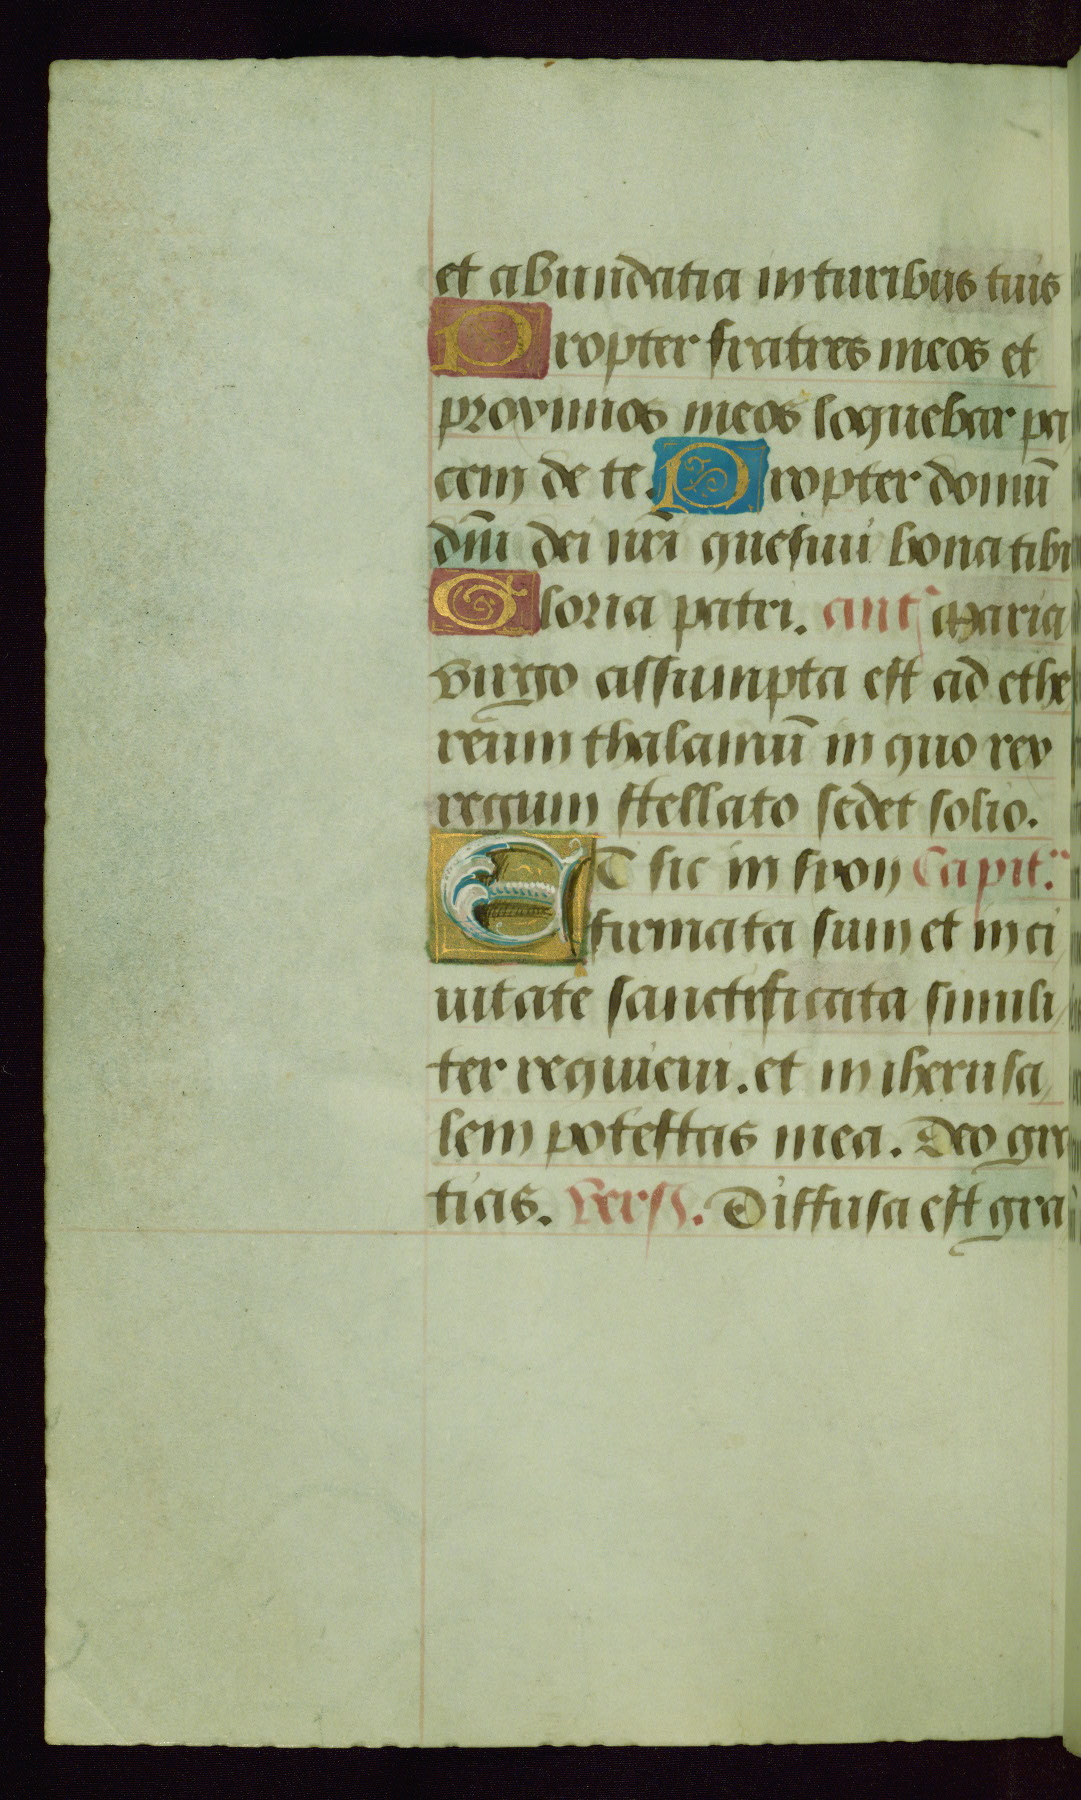 et abundātia in turibus tuis
Propter fratres meos et
proximos meos loquebar pa
cem de te. Propter domū
dm̄ dei nr̄i quesiui bona tibi
Gloria patri. ant' Maria
virgo assumpta est ad ethe
reum thalamū in quo rex
regum stellato sedet solio.
ET sic in syon Capit'.
firmata sum et in ci
uitate sanctificata simili
ter requieui. et in iherusa
lem potestas mea. Deo gra
tias. Vers. Diffusa est gra